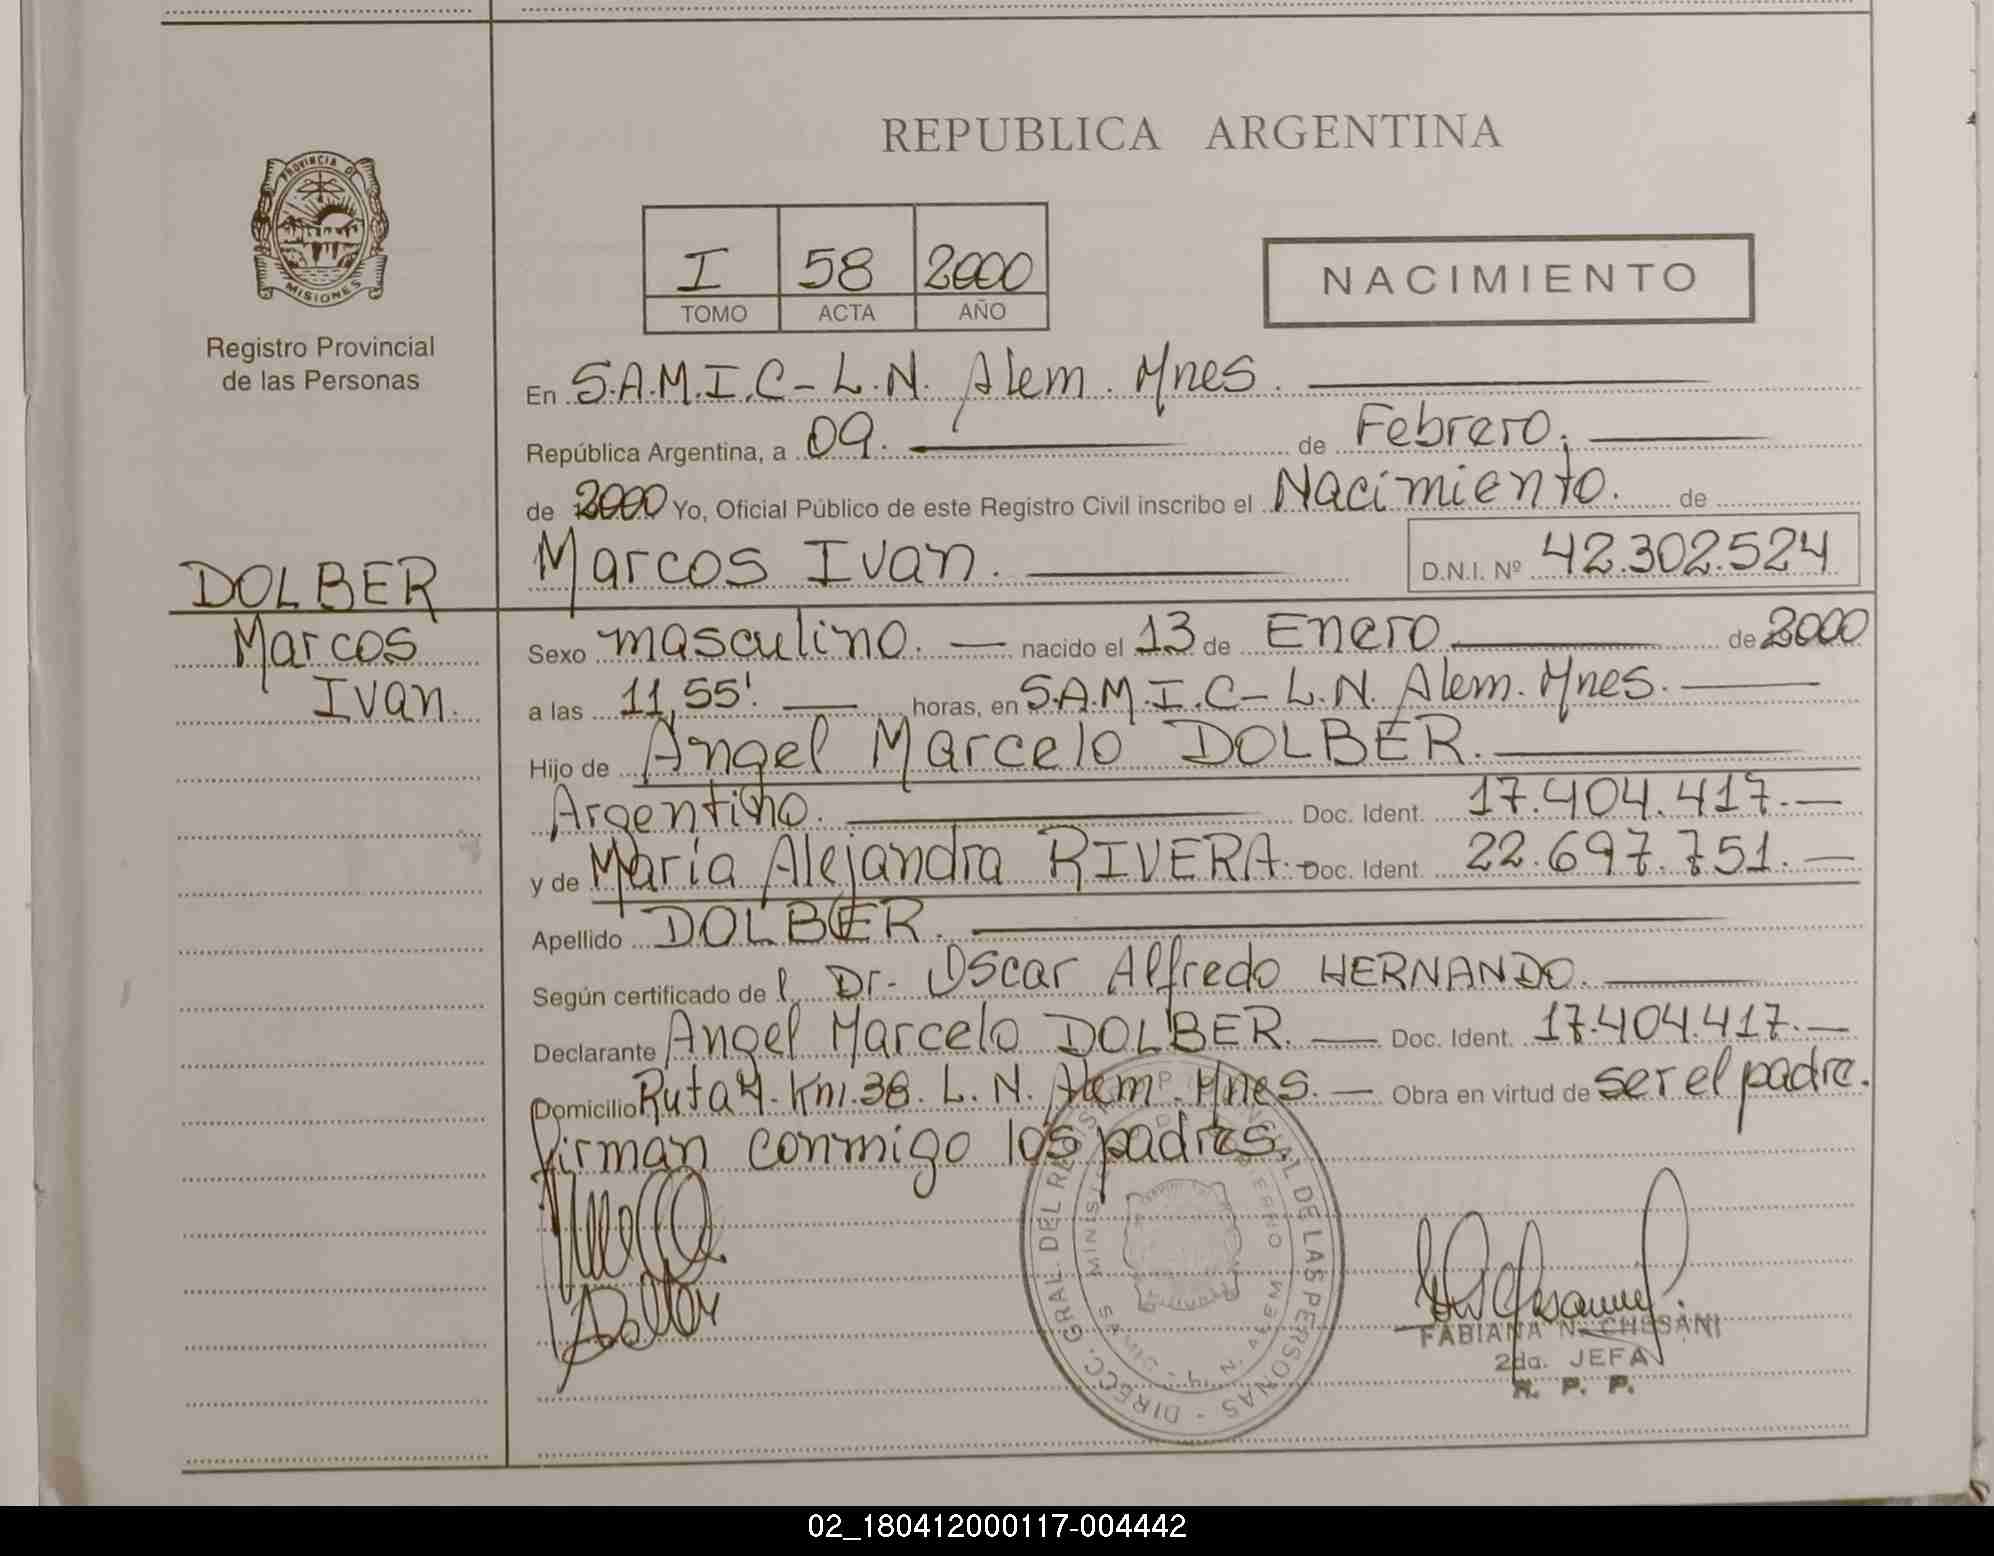 REPUBLICA ARGENTINA
PROVINCIA DE
MISIONES
Registro Provincial
de las Personas
I 58 2000
TOMO ACTA AÑO
NACIMIENTO
En S.A.M.I.C - L.N. Alem. Mnes.
República Argentina, a 09. de Febrero.
de 2000 Yo, Oficial Público de este Registro Civil inscribo el Nacimiento. de
Marcos Ivan. D.N.I. Nº 42.302.524
DOLBER
Marcos
Ivan.
Sexo masculino. nacido el 13 de Enero de 2000
a las 11,55' horas, en S.A.M.I.C - L.N. Alem. Mnes.
Hijo de Angel Marcelo DOLBER.
Argentino. Doc. Ident. 17.404.417.
y de María Alejandra RIVERA. Doc. Ident. 22.697.751.
Apellido DOLBER.
Según certificado de l Dr. Oscar Alfredo HERNANDO.
Declarante Angel Marcelo DOLBER. Doc. Ident. 17.404.417.
Domicilio Ruta 4. Km. 38. L. N. Alem. Mnes. Obra en virtud de ser el padre.
firman conmigo los padres.
DIRECC. GRAL. DEL DE LAS PERSONAS
FABIANA N. CHESANI
2da. JEFA
R. P. P.
02_180412000117-004442